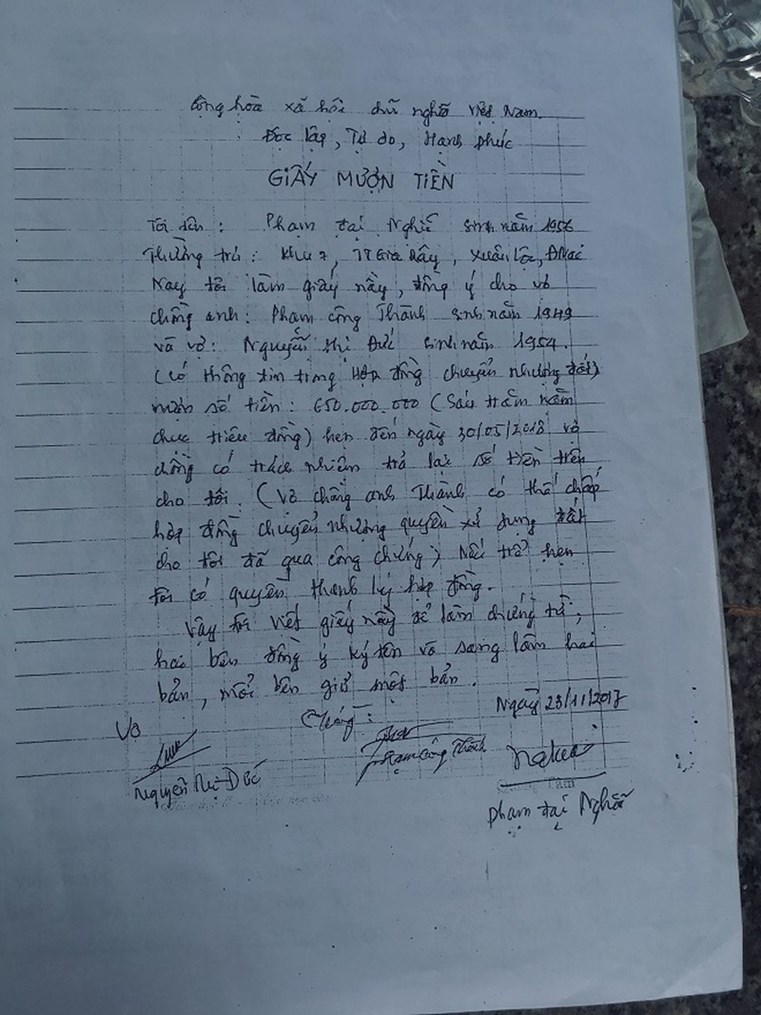 Cộng hòa xã hôi chủ nghĩa Việt Nam.
Độc lập, Tự do, Hạnh phúc
GIẤY MƯỢN TIỀN
Tôi tên: Phạm Đại Nghĩa sinh năm 1956
Thường trú: Khu 7, TT Gia Rây, Xuân Lộc, ĐNai
Nay tôi làm giấy nầy, đồng ý cho vợ
chồng anh: Phạm Công Thành sinh năm 1949
và vợ: Nguyễn Thị Đức sinh năm 1954.
(có thông tin trong Hợp đồng chuyển nhượng đất)
mượn số tiền: 650.000.000 (Sáu trăm năm
chục triệu đồng) hẹn đến ngày 30/05/2018 vợ
chồng có trách nhiệm trả lại số tiền trên
cho tôi. (Vợ chồng anh Thành có thế chấp
hợp đồng chuyển nhượng quyền xử dụng đất
cho tôi đã qua công chứng) Nếu trể hẹn
tôi có quyền thanh lý hợp đồng.
Vậy tôi viết giấy nầy để làm chứng từ,
hai bên đồng ý ký tên và sang làm hai
bản, mỗi bên giữ một bản.
Ngày 23/11/2017
Vợ Chồng:
Nguyễn Thị Đức Phạm Công Thành
Phạm Đại Nghĩa